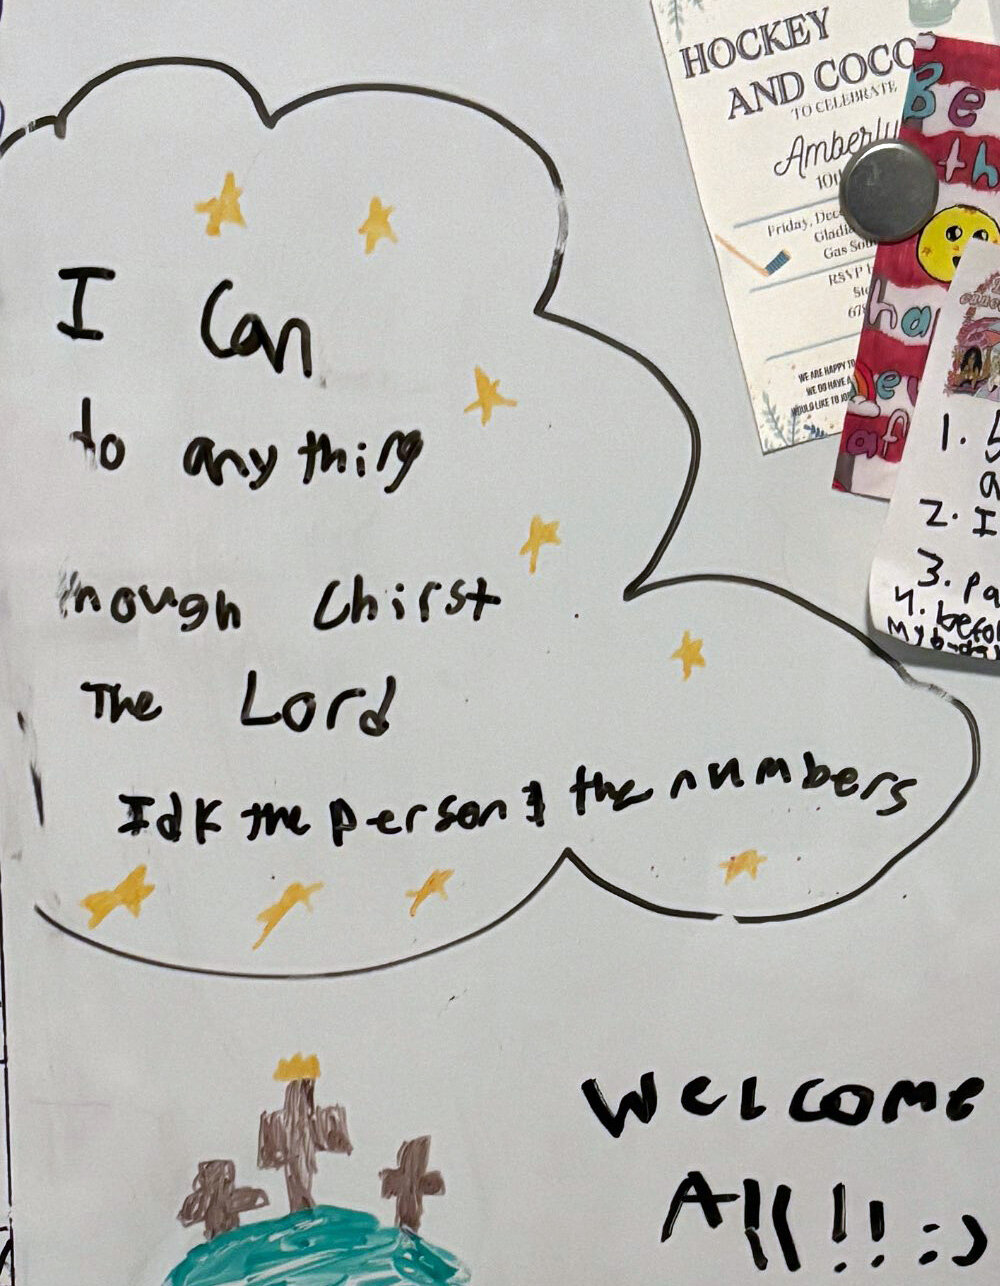 I Can
to anything
nough Chirst
The Lord
Idk the person & the numbers
Welcome
All!! :)
HOCKEY
AND COCO
TO CELEBRATE
Amberly
10th
Friday, Dec
Gladia
Gas Sou
RSVP
Ste
678
WE ARE HAPPY TO
WE DO HAVE A
WOULD LIKE TO JO
Be
th
ha
er
af
1. b
a
2. I
3. Pa
4. befor
My b-day